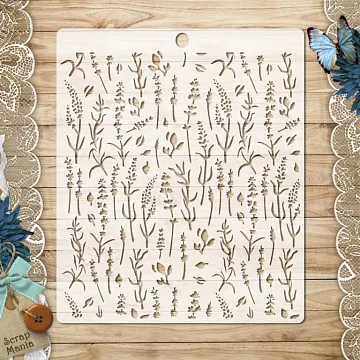 Scrap
Mania